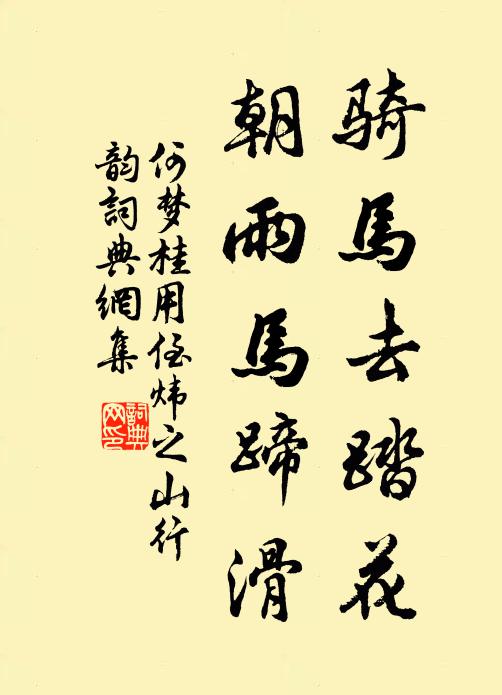 骑馬去踏花
朝雨馬蹄滑
何梦桂用侄炜之山行
韵詞典網集
詞典网印